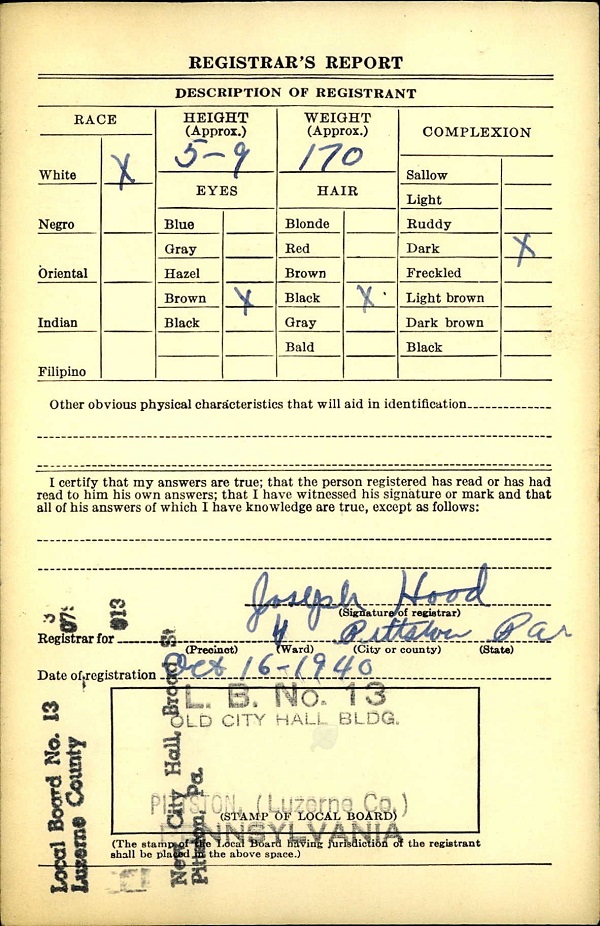 REGISTRAR'S REPORT
DESCRIPTION OF REGISTRANT
RACE
HEIGHT
(Approx.)
5-9
WEIGHT
(Approx.)
170
COMPLEXION
White X
Negro
Oriental
Indian
Filipino
EYES
Blue
Gray
Hazel
Brown X
Black
HAIR
Blonde
Red
Brown
Black X
Gray
Bald
Sallow
Light
Ruddy
Dark X
Freckled
Light brown
Dark brown
Black
Other obvious physical characteristics that will aid in identification
I certify that my answers are true; that the person registered has read or has had
read to him his own answers; that I have witnessed his signature or mark and that
all of his answers of which I have knowledge are true, except as follows:
Joseph Hood
(Signature of registrar)
Registrar for 4 Pittston Pa
(Precinct) (Ward) (City or county) (State)
Date of registration Oct 16-1940
L. B. No. 13
OLD CITY HALL BLDG.
PITTSTON, (Luzerne Co.)
(STAMP OF LOCAL BOARD)
PENNSYLVANIA
(The stamp of the Local Board having jurisdiction of the registrant
shall be placed in the above space.)
Local Board No. 13
Luzerne County
New City Hall, Broad St
Pittston, Pa.